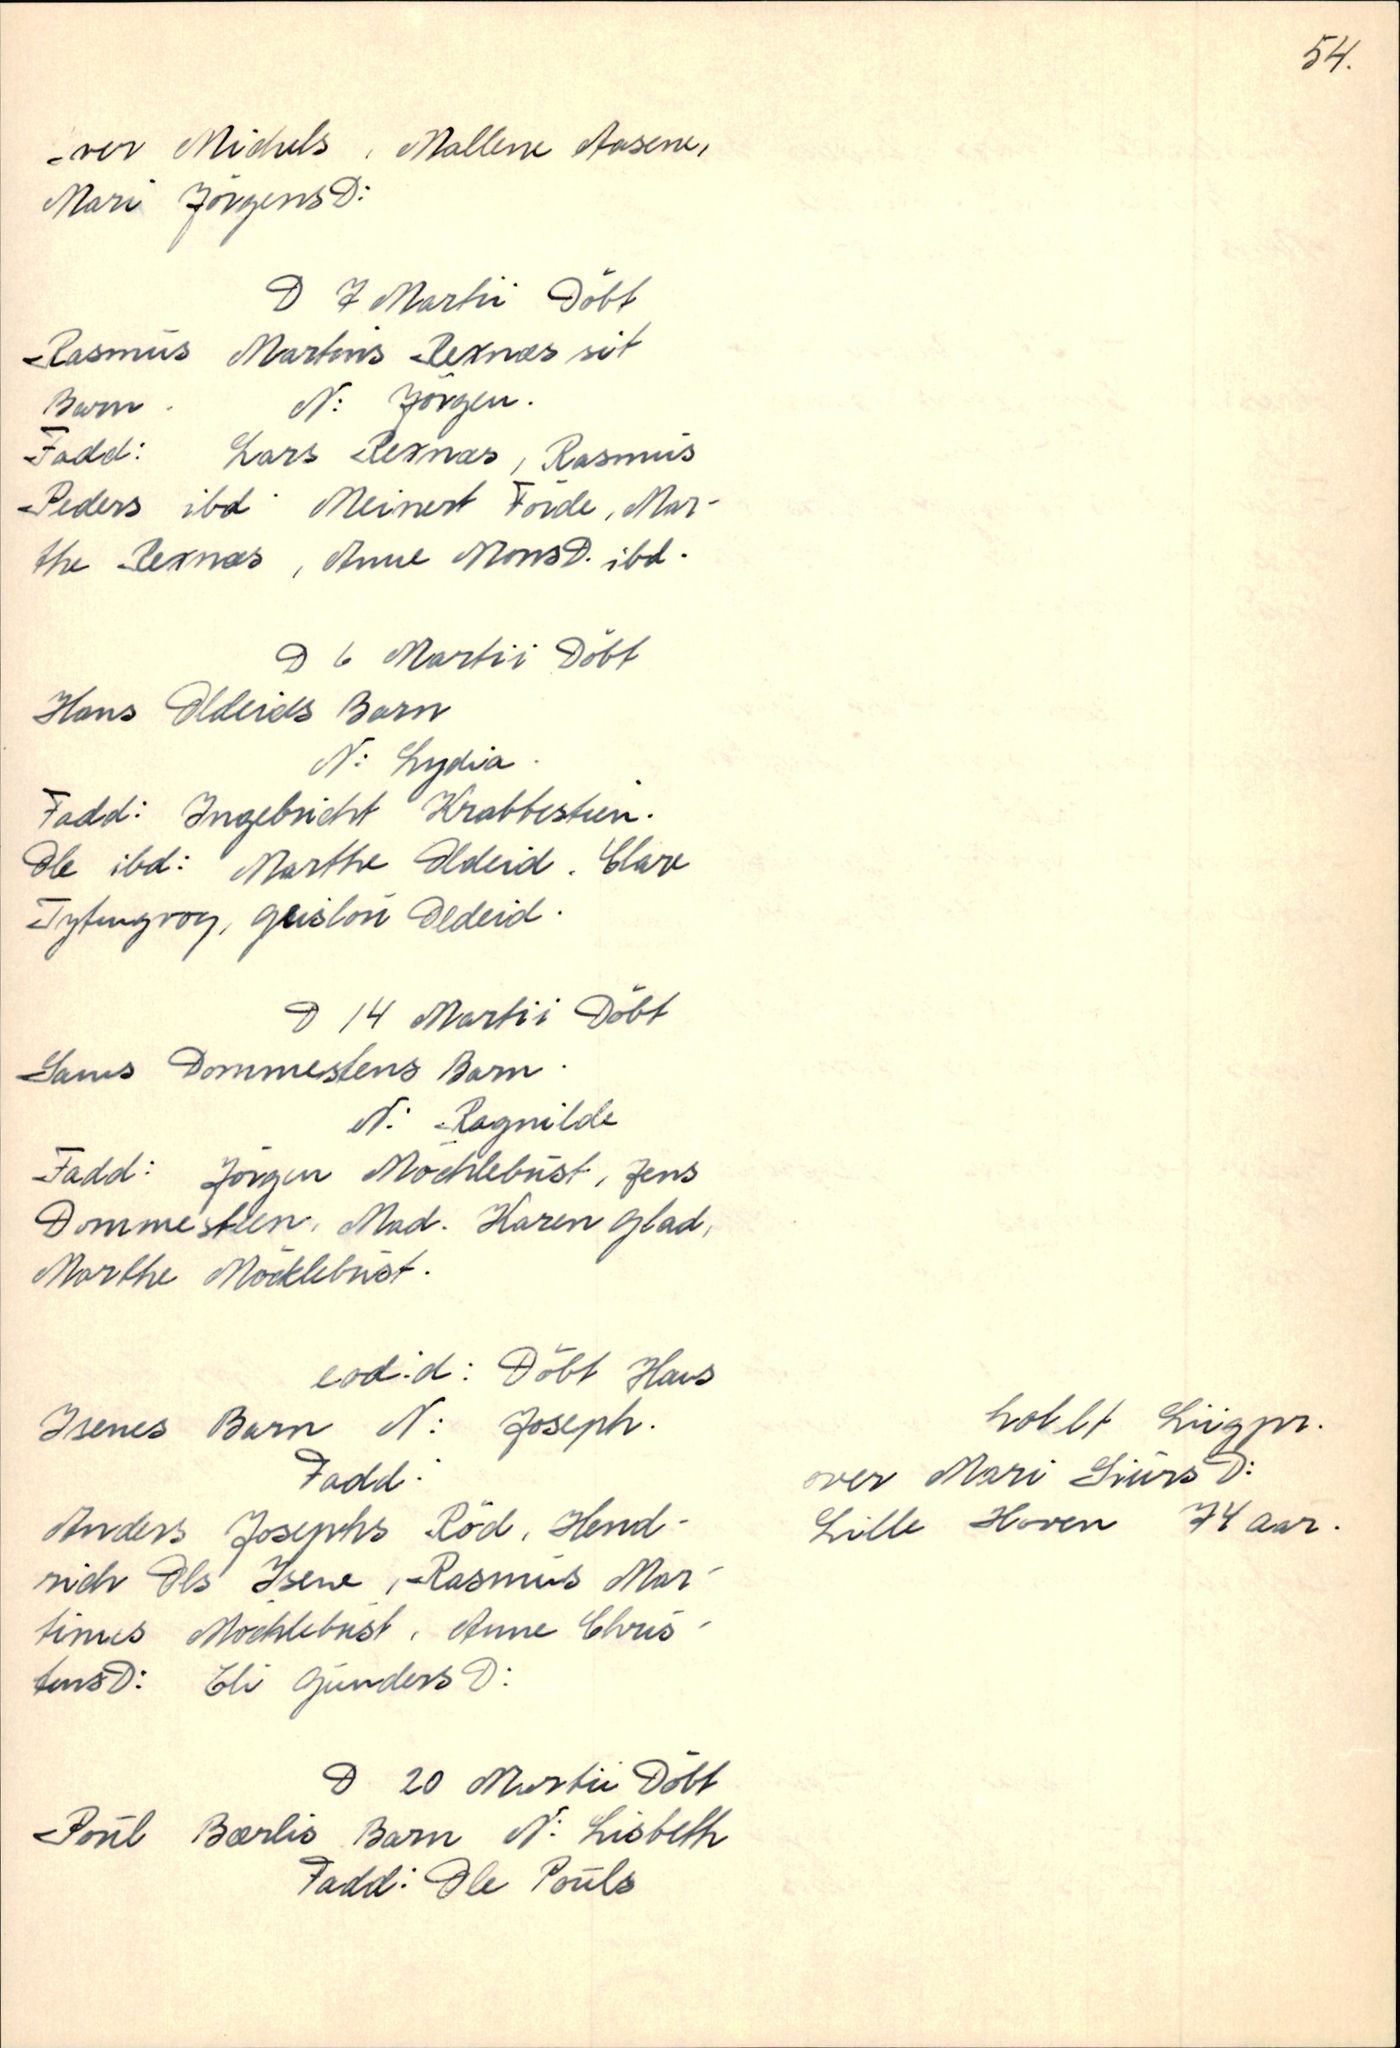 54.
Iver Michels, Mallene Aasene,
Mari JörgensD:
D 7 Martii Döbt
Rasmus Martins Rexnæs sit
Barn. N: Jörgen.
Fadd: Lars Rexnæs, Rasmus
Peders ibd. Meinert Förde, Mar-
the Rexnæs, Anne MonsD. ibd.
D 6 Martii Döbt
Hans Oldeids Barn
N: Lydia.
Fadd: Ingebricht Krabbestein.
Ole ibd: Marthe Oldeid. Clare
Tytingvog, Geislou Oldeid.
D 14 Martii Döbt
Dommestens Barn.
N: Ragnilde
Fadd: Jörgen Möchlebust, Jens
Dommesteen, Mad. Karen Glad,
Marthe Möcklebust.
eod. d: Döbt Hans
Isenes Barn N: Joseph.
Fadd:
Anders Josephs Röd, Hend-
rich Ols Isene, Rasmus Mar-
tinus Möchlebust, Anne Chris-
tensD: Eli GundersD:
D 20 Martii Döbt
Poul Bærlis Barn N: Lisbeth
Fadd: Ole Pouls
holdt Liigpr.
over Mari SiursD:
Lille Hoven 74 aar.